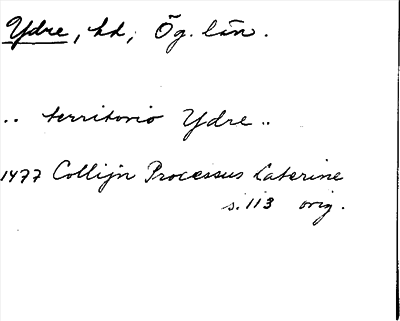 Ydre, hd, Ög. län.
.. territorio Ydre ..
1477 Collijn Processus Katerine
s. 113 orig.